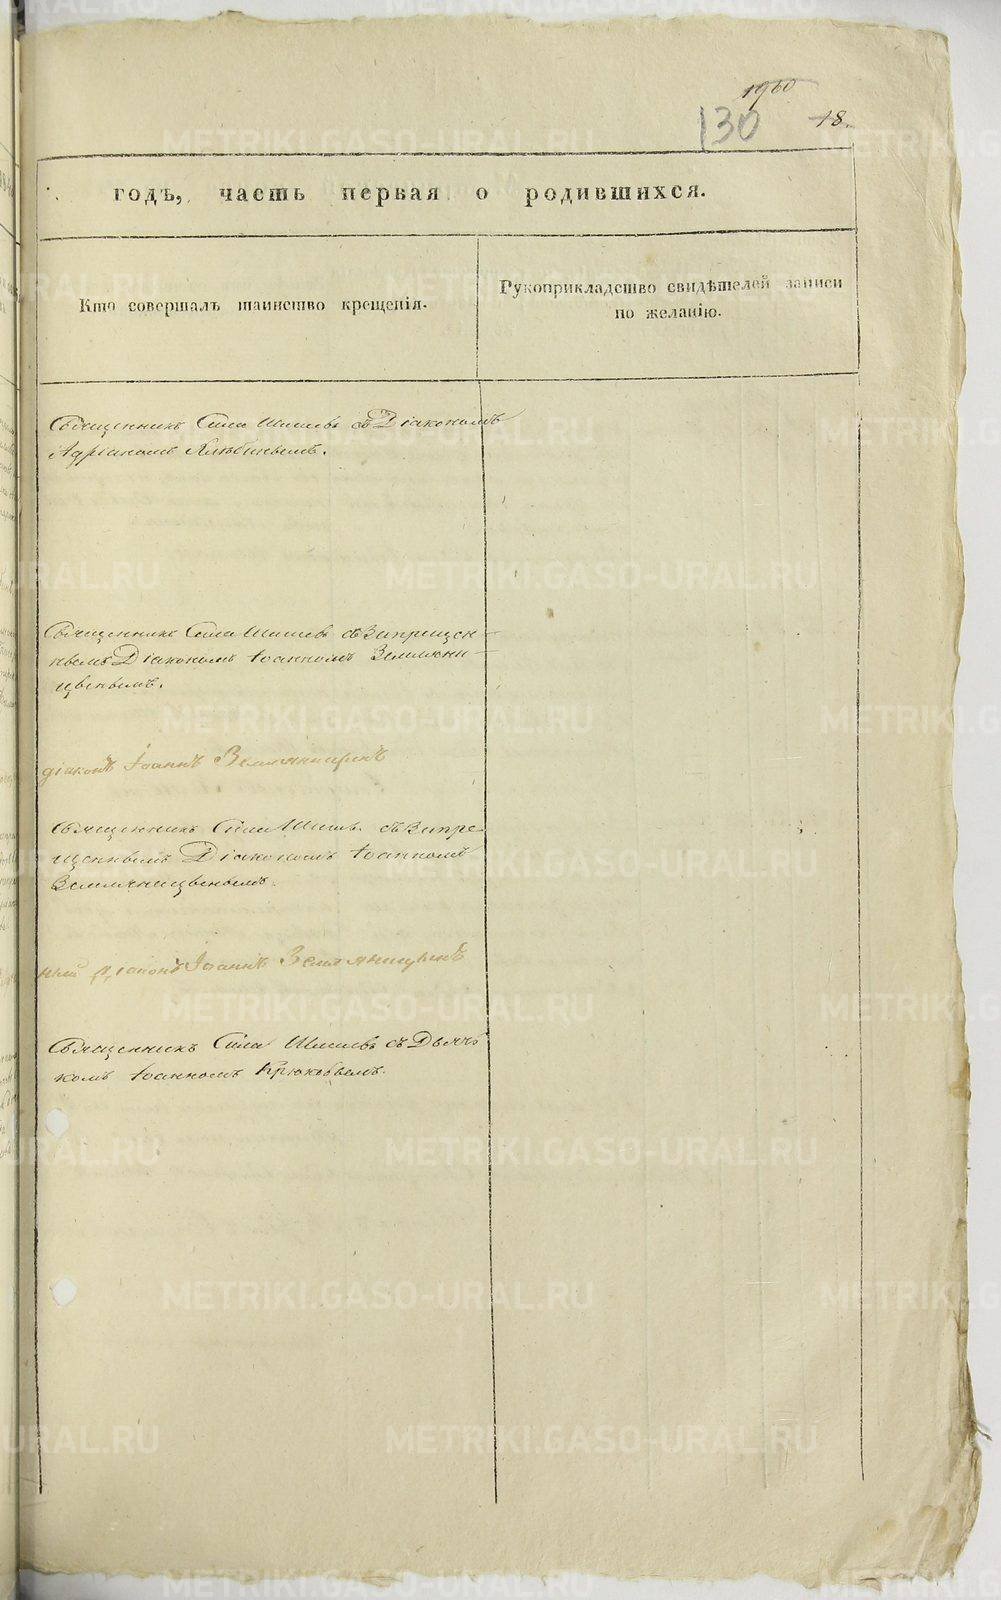 1960
130
18.
годъ, часть первая о родившихся.
Кто совершалъ таинство крещенія.
Рукоприкладство свидѣтелей записи
по желанію.
Священникъ Сила Шишевъ съ Діакономъ
Адріаномъ
Священникъ Сила Шишевъ съ Запрещен-
нымъ Діакономъ Іоанномъ Земляни-
цынымъ.
діаконъ Іоаннъ Земляницынъ
Священникъ Сила Шишевъ съ Запре-
щеннымъ Діакономъ Іоанномъ
Земляницынымъ.
ный Діаконъ Іоаннъ Земляницынъ
Священникъ Сила Шишевъ съ Дьяч-
комъ Іоанномъ Крюковымъ.
METRIKI.GASO-URAL.RU